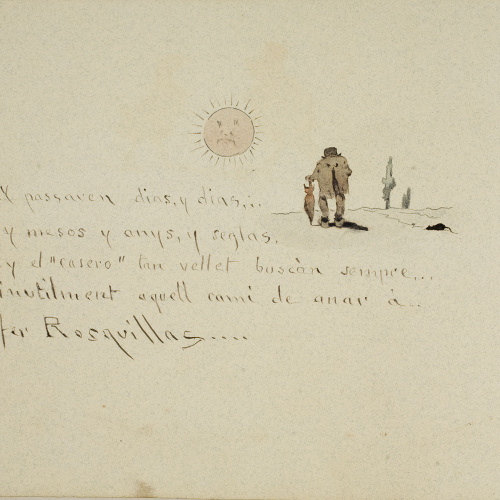 Y passaven dias, y dias,...
y mesos y anys, y seglas,
y el "casero" tan vellet buscàn sempre...
inutilment aquell cami de anar à..
fer Rosquillas....